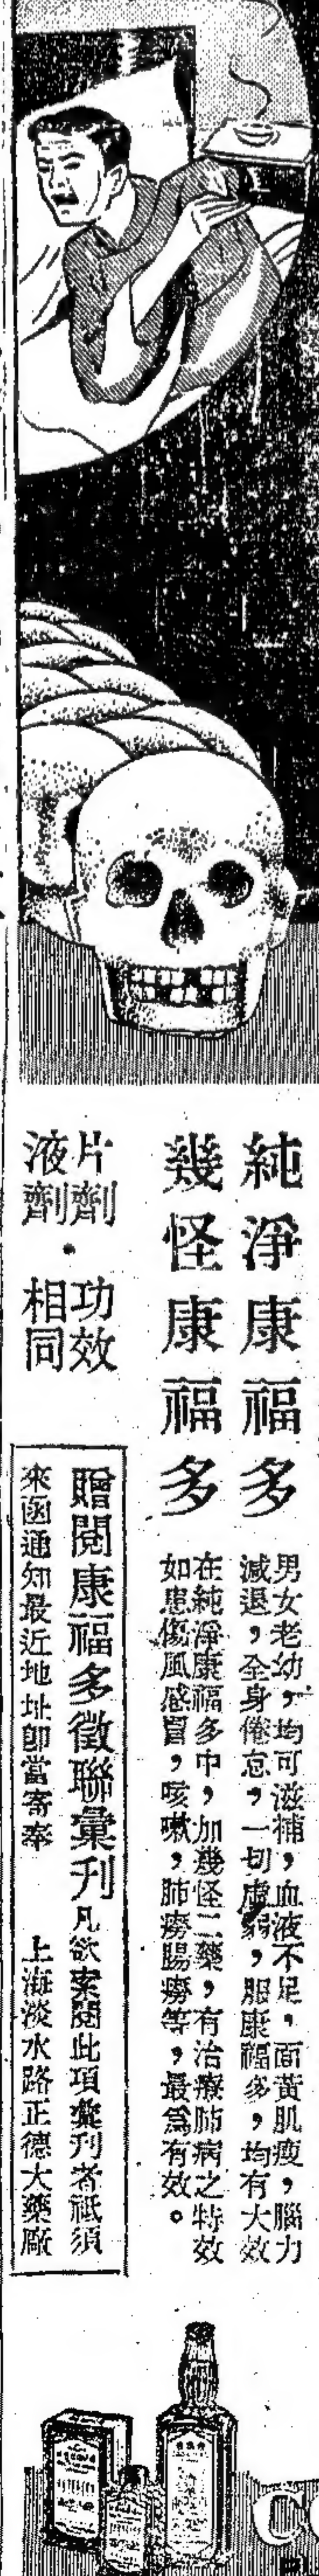 純淨康福多
男女老幼，均可滋補，血液不足，面黃肌瘦，腦力
減退，全身倦怠，一切虛弱，服康福多，均有大效
幾怪康福多
在純淨康福多中，加幾怪二藥，有治療肺病之特效
如患傷風感冒，咳嗽，肺癆腸癆等，最為有效。
片劑・功效
液劑・相同
贈閱康福多徵聯彙刊
凡欲索閱此項彙刊者祇須
來函通知最近地址即當寄奉
上海淡水路正德大藥廠
CO